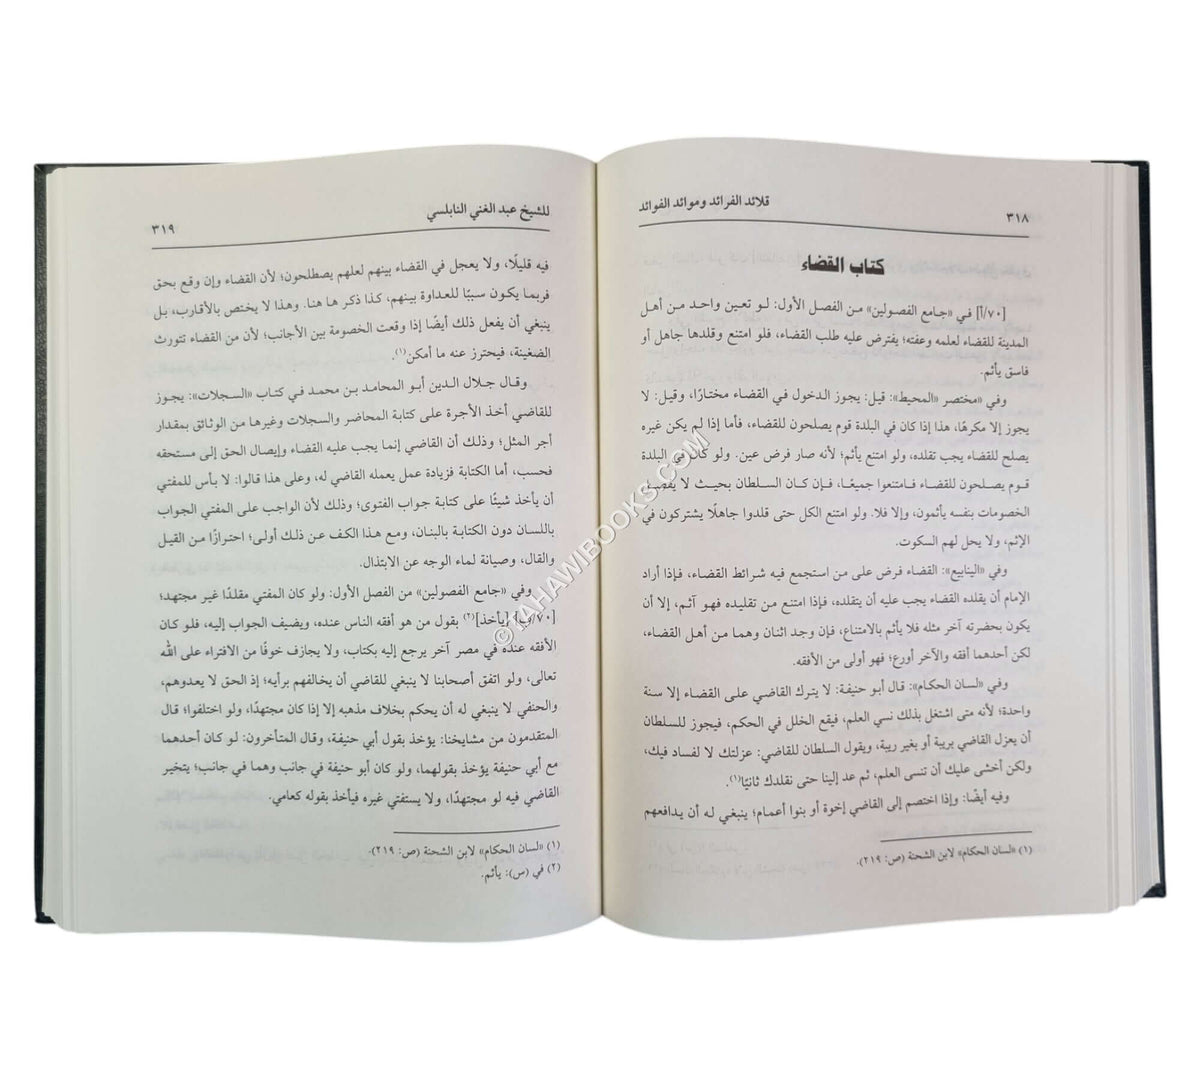 ٣١٨
قلائد الفرائد وموائد الفوائد
كتاب القضاء
[٧٠/أ] في «جامع الفصولين» من الفصل الأول: لو تعين واحد من أهل
المدينة للقضاء لعلمه وعفته؛ يفترض عليه طلب القضاء، فلو امتنع وقلدها جاهل أو
فاسق يأثم.
وفي «مختصر «المحيط»: قيل: يجوز الدخول في القضاء مختارًا، وقيل: لا
يجوز إلا مكرهًا، هذا إذا كان في البلدة قوم يصلحون للقضاء، فأما إذا لم يكن غيره
يصلح للقضاء يجب تقلده، ولو امتنع يأثم؛ لأنه صار فرض عين. ولو كان في البلدة
قوم يصلحون للقضاء فامتنعوا جميعًا، فإن كان السلطان بحيث لا يفصل
الخصومات بنفسه يأثمون، وإلا فلا. ولو امتنع الكل حتى قلدوا جاهلًا يشتركون في
الإثم، ولا يحل لهم السكوت.
وفي «الينابيع»: القضاء فرض على من استجمع فيه شرائط القضاء، فإذا أراد
الإمام أن يقلده القضاء يجب عليه أن يتقلده، فإذا امتنع من تقليده فهو آثم، إلا أن
يكون بحضرته آخر مثله فلا يأثم بالامتناع، فإن وجد اثنان وهما من أهل القضاء،
لكن أحدهما أفقه والآخر أورع؛ فهو أولى من الأفقه.
وفي «لسان الحكام»: قال أبو حنيفة: لا يترك القاضي على القضاء إلا سنة
واحدة؛ لأنه متى اشتغل بذلك نسي العلم، فيقع الخلل في الحكم، فيجوز للسلطان
أن يعزل القاضي بريبة أو بغير ريبة، ويقول السلطان للقاضي: عزلتك لا لفساد فيك،
ولكن أخشى عليك أن تنسى العلم، ثم عد إلينا حتى نقلدك ثانيًا(١).
وفيه أيضًا: وإذا اختصم إلى القاضي إخوة أو بنوا أعمام؛ ينبغي له أن يدافعهم
(١) «لسان الحكام» لابن الشحنة (ص: ٢١٩).
للشيخ عبد الغني النابلسي
٣١٩
فيه قليلًا، ولا يعجل في القضاء بينهم لعلهم يصطلحون؛ لأن القضاء وإن وقع بحق
فربما يكون سببًا للعداوة بينهم، كذا ذكر ها هنا. وهذا لا يختص بالأقارب، بل
ينبغي أن يفعل ذلك أيضًا إذا وقعت الخصومة بين الأجانب؛ لأن من القضاء تتورث
الضغينة، فيحترز عنه ما أمكن(١).
وقال جلال الدين أبو المحامد بن محمد في كتاب «السجلات»: يجوز
للقاضي أخذ الأجرة على كتابة المحاضر والسجلات وغيرها من الوثائق بمقدار
أجر المثل؛ وذلك أن القاضي إنما يجب عليه القضاء وإيصال الحق إلى مستحقه
فحسب، أما الكتابة فزيادة عمل يعمله القاضي له، وعلى هذا قالوا: لا بأس للمفتي
أن يأخذ شيئًا على كتابة جواب الفتوى؛ وذلك لأن الواجب على المفتي الجواب
باللسان دون الكتابة بالبنان، ومع هذا الكف عن ذلك أولى؛ احترازًا من القيل
والقال، وصيانة لماء الوجه عن الابتذال.
وفي «جامع الفصولين» من الفصل الأول: ولو كان المفتي مقلدًا غير مجتهد؛
[٧٠/ب] [يأخذ](٢) بقول من هو أفقه الناس عنده، ويضيف الجواب إليه، فلو كان
الأفقه عنده في مصر آخر يرجع إليه بكتاب، ولا يجازف خوفًا من الافتراء على الله
تعالى، ولو اتفق أصحابنا لا ينبغي للقاضي أن يخالفهم برأيه؛ إذ الحق لا يعدوهم،
والحنفي لا ينبغي له أن يحكم بخلاف مذهبه إلا إذا كان مجتهدًا، ولو اختلفوا؛ قال
المتقدمون من مشايخنا: يؤخذ بقول أبي حنيفة، وقال المتأخرون: لو كان أحدهما
مع أبي حنيفة يؤخذ بقولهما، ولو كان أبو حنيفة في جانب وهما في جانب؛ يتخير
القاضي فيه لو مجتهدًا، ولا يستفتي غيره فيأخذ بقوله كعامي.
(١) «لسان الحكام» لابن الشحنة (ص: ٢١٩).
(٢) في (س): يأثم.
©TAHAWIBOOKS.COM